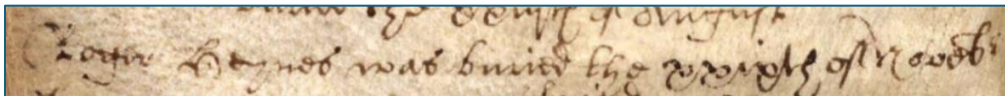 the of August
Roger Heynes was buried the xxixth of Novebr